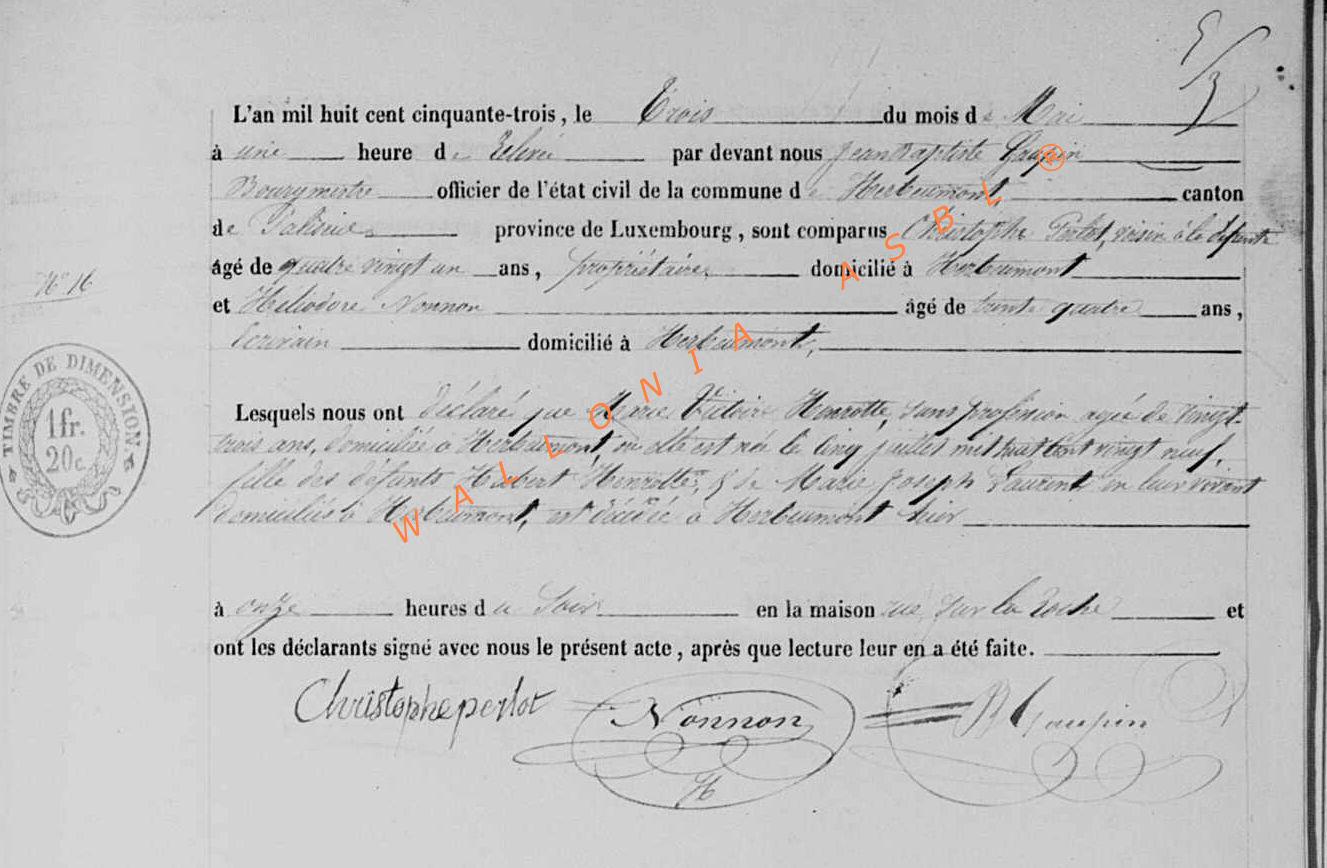 5/3
L'an mil huit cent cinquante-trois, le Trois du mois de Mai
à une heure de relevée par devant nous Jean Baptiste
Bourgmestre officier de l'état civil de la commune de Herbeumont canton
de Paliseul province de Luxembourg, sont comparus Christophe Perlot, voisin à la défunte
âgé de quatre vingt un ans, propriétaire, domicilié à Herbeumont
N° 16
et Héliodore Nonnon âgé de trente quatre ans,
Ecrivain domicilié à Herbeumont,
TIMBRE DE DIMENSION
1 fr.
20 c.
Lesquels nous ont déclaré que Marie Victoire Henrotte, sans profession agée de vingt-
trois ans, domiciliée à Herbeumont, où elle est née le cinq juillet mil huit cent vingt neuf,
fille des défunts Hubert Henrotte, & de Marie Joseph Laurent en leur vivant
domiciliés à Herbeumont, est décédée à Herbeumont hier
à onze heures du Soir en la maison rue sur la roche et
ont les déclarants signé avec nous le présent acte, après que lecture leur en a été faite.
Christophe perlot Nonnon
H
WALLONIA ASBL ®